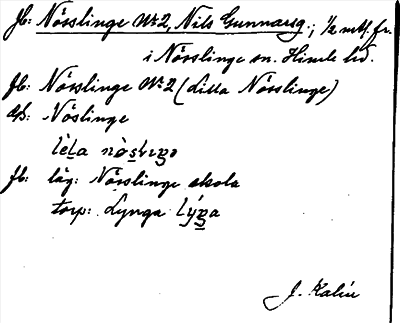 Jb: Nösslinge Nr 2, Nils Gunnarsg.; 1/2 mtl. fr.
i Nösslinge sn. Himle hd.
Jb: Nösslinge Nr 2 (Lilla Nösslinge)
Nöslinge
Jb: läg: Nösslinge skola
torp: Lynga
J. Kalén